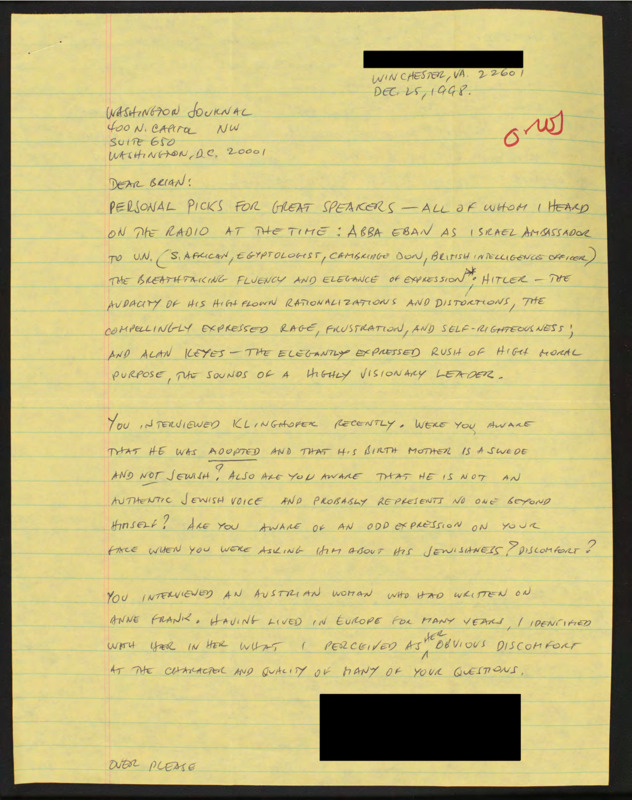 WINCHESTER, VA. 22601
DEC. 25, 1998.
WASHINGTON JOURNAL
400 N. CAPITOL NW
SUITE 650
WASHINGTON, D.C. 20001
DEAR BRIAN:
PERSONAL PICKS FOR GREAT SPEAKERS — ALL OF WHOM I HEARD
ON THE RADIO AT THE TIME: ABBA EBAN AS ISRAEL AMBASSADOR
TO U.N. (S. AFRICAN, EGYPTOLOGIST, CAMBRIDGE DON, BRITISH INTELLIGENCE OFFICER)
THE BREATHTAKING FLUENCY AND ELEGANCE OF EXPRESSION; HITLER — THE
AUDACITY OF HIS HIGH FLOWN RATIONALIZATIONS AND DISTORTIONS, THE
COMPELLINGLY EXPRESSED RAGE, FRUSTRATION, AND SELF-RIGHTEOUSNESS;
AND ALAN KEYES — THE ELEGANTLY EXPRESSED RUSH OF HIGH MORAL
PURPOSE, THE SOUNDS OF A HIGHLY VISIONARY LEADER.
YOU INTERVIEWED KLINGHOFER RECENTLY. WERE YOU AWARE
THAT HE WAS ADOPTED AND THAT HIS BIRTH MOTHER IS A SWEDE
AND NOT JEWISH? ALSO ARE YOU AWARE THAT HE IS NOT AN
AUTHENTIC JEWISH VOICE AND PROBABLY REPRESENTS NO ONE BEYOND
HIMSELF? ARE YOU AWARE OF AN ODD EXPRESSION ON YOUR
FACE WHEN YOU WERE ASKING HIM ABOUT HIS JEWISHNESS? DISCOMFORT?
YOU INTERVIEWED AN AUSTRIAN WOMAN WHO HAD WRITTEN ON
ANNE FRANK. HAVING LIVED IN EUROPE FOR MANY YEARS, I IDENTIFIED
WITH HER IN HER WHAT I PERCEIVED AS HER OBVIOUS DISCOMFORT
AT THE CHARACTER AND QUALITY OF MANY OF YOUR QUESTIONS.
OVER PLEASE